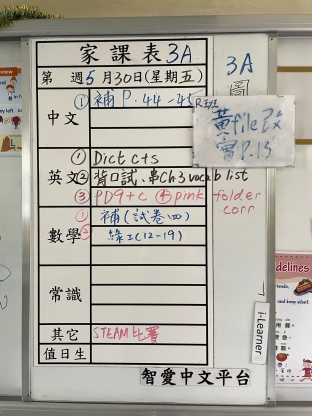 家課表 3A
第 週 5 月 30 日 (星期五)
3A
圖
中文
① 補 P.44-45
R班
黃file改
P.13
英文
① Dict c+s
② 背口試、串Ch3 vocab list
③ PD9+c ④ pink folder
corr
數學
① 補(試卷四)
② 綠工(12-19)
常識
其它
STEAM比賽
值日生
智愛中文平台
i-Learner
delines
and keep silent.